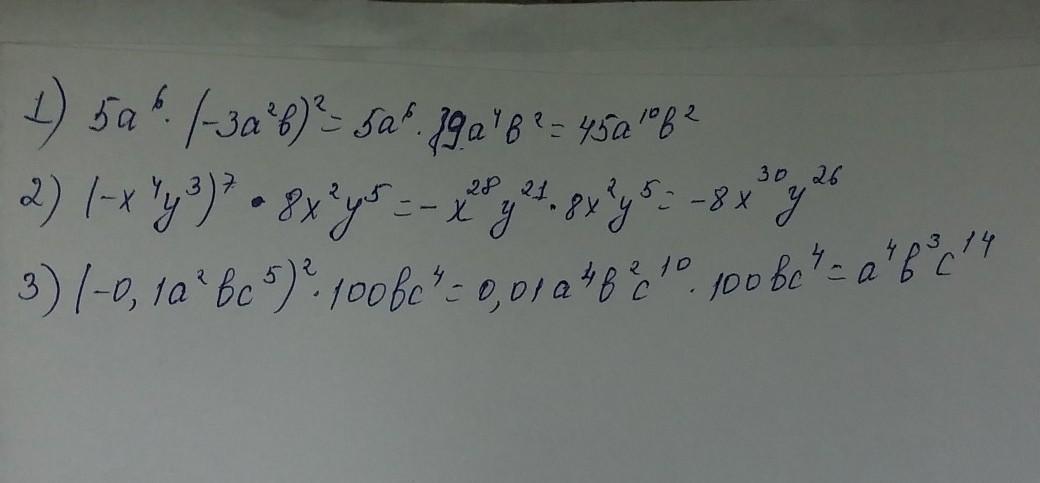 1) 5a⁶ · (-3a²в)² = 5a⁶ · 9a⁴в² = 45a¹⁰в²
2) (-x⁴y³)⁷ · 8x²y⁵ = -x²⁸y²¹ · 8x²y⁵ = -8x³⁰y²⁶
3) (-0,1a²вc⁵)² · 100вc⁴ = 0,01a⁴в²c¹⁰ · 100вc⁴ = a⁴в³c¹⁴